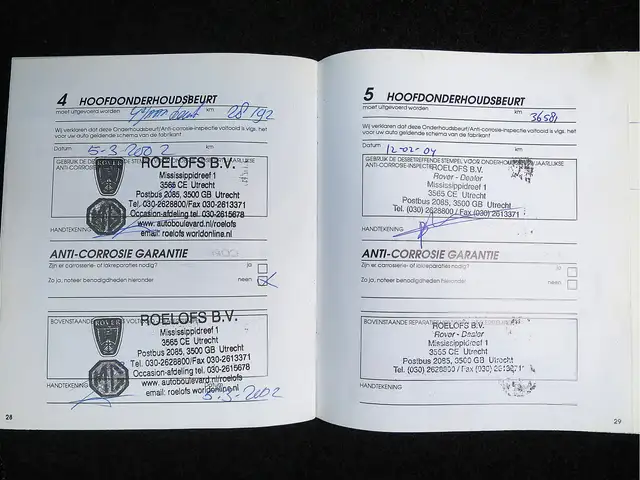 4 HOOFDONDERHOUDSBEURT
moet uitgevoerd worden km 28192
Wij verklaren dat deze Onderhoudsbeurt/Anti-corrosie-inspectie voltooid is vlgs. het
voor uw auto geldende schema van de fabrikant
Datum 5-3-2002 km
GEBRUIK DE
ANTI-CORROSIE
ROVER
ROELOFS B.V.
Mississippidreef 1
3565 CE Utrecht
Postbus 2085, 3500 GB Utrecht
Tel. 030-2628800/Fax 030-2613371
Occasion-afdeling tel. 030-2615678
www.autoboulevard.nl/roelofs
email: roelofs worldonline.nl
MG
HANDTEKENING
ANTI-CORROSIE GARANTIE
Zijn er carrosserie- of lakreparaties nodig? ja
Zo ja, noteer benodigdheden hieronder neen
BOVENSTAANDE
ROVER
ROELOFS B.V.
Mississippidreef 1
3565 CE Utrecht
Postbus 2085, 3500 GB Utrecht
Tel. 030-2628800/Fax 030-2613371
Occasion-afdeling tel. 030-2615678
www.autoboulevard.nl/roelofs
email: roelofs worldonline.nl
MG
HANDTEKENING 5-3-2002
28
5 HOOFDONDERHOUDSBEURT
moet uitgevoerd worden km 36581
Wij verklaren dat deze Onderhoudsbeurt/Anti-corrosie-inspectie voltooid is vlgs. het
voor uw auto geldende schema van de fabrikant
Datum 12-02-04 km
GEBRUIK DE DESBETREFFENDE STEMPEL VOOR ONDERHOUD
ANTI-CORROSIE-INSPECTIE
ROELOFS B.V.
Rover - Dealer
Mississippidreef 1
3565 CE Utrecht
Postbus 2085, 3500 GB Utrecht
Tel. (030) 2628800 / Fax (030) 2613371
HANDTEKENING
ANTI-CORROSIE GARANTIE
Zijn er carrosserie- of lakreparaties nodig? ja
Zo ja, noteer benodigdheden hieronder neen
BOVENSTAANDE
ROELOFS B.V.
Rover - Dealer
Mississippidreef 1
3565 CE Utrecht
Postbus 2085, 3500 GB Utrecht
Tel. (030) 2628800 / Fax (030) 2613371
HANDTEKENING
29